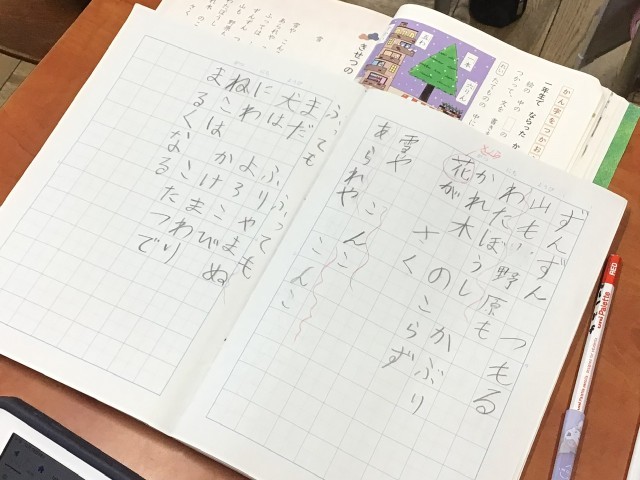 ずんずん つもる
山も 野原も
わたぼうし かぶり
かれ木 のこらず
花が さく
雪や こんこ
あられや こんこ
ふっても ふっても
まだ ふりやまぬ
犬は よろこび
にわ かけまわり
ねこは こたつで
まるくなる
かん字をつかおう
一年生で ならった か
一本
六りん
きせつの
RED
Palette